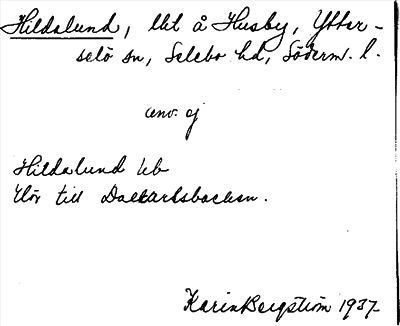 Hildalund, lht å Husby, Ytter-
selö sn, Selebo hd, Söderm. l.
anv. ej
Hildalund lb
Hör till Dalkarlsbacken.
Karin Bergström 1937